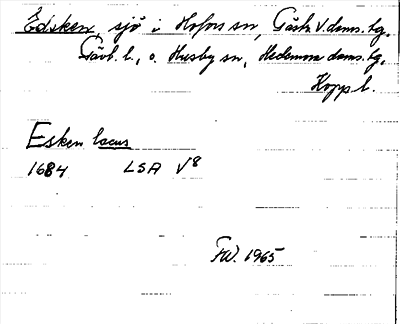 Edsken, sjö i Hofors sn, Gästr. V. doms. hg,
Gävl. l., o. Husby sn, Hedemora doms. hg,
Kopp l.
Esken lacus
1684 LSA V8
FW. 1965